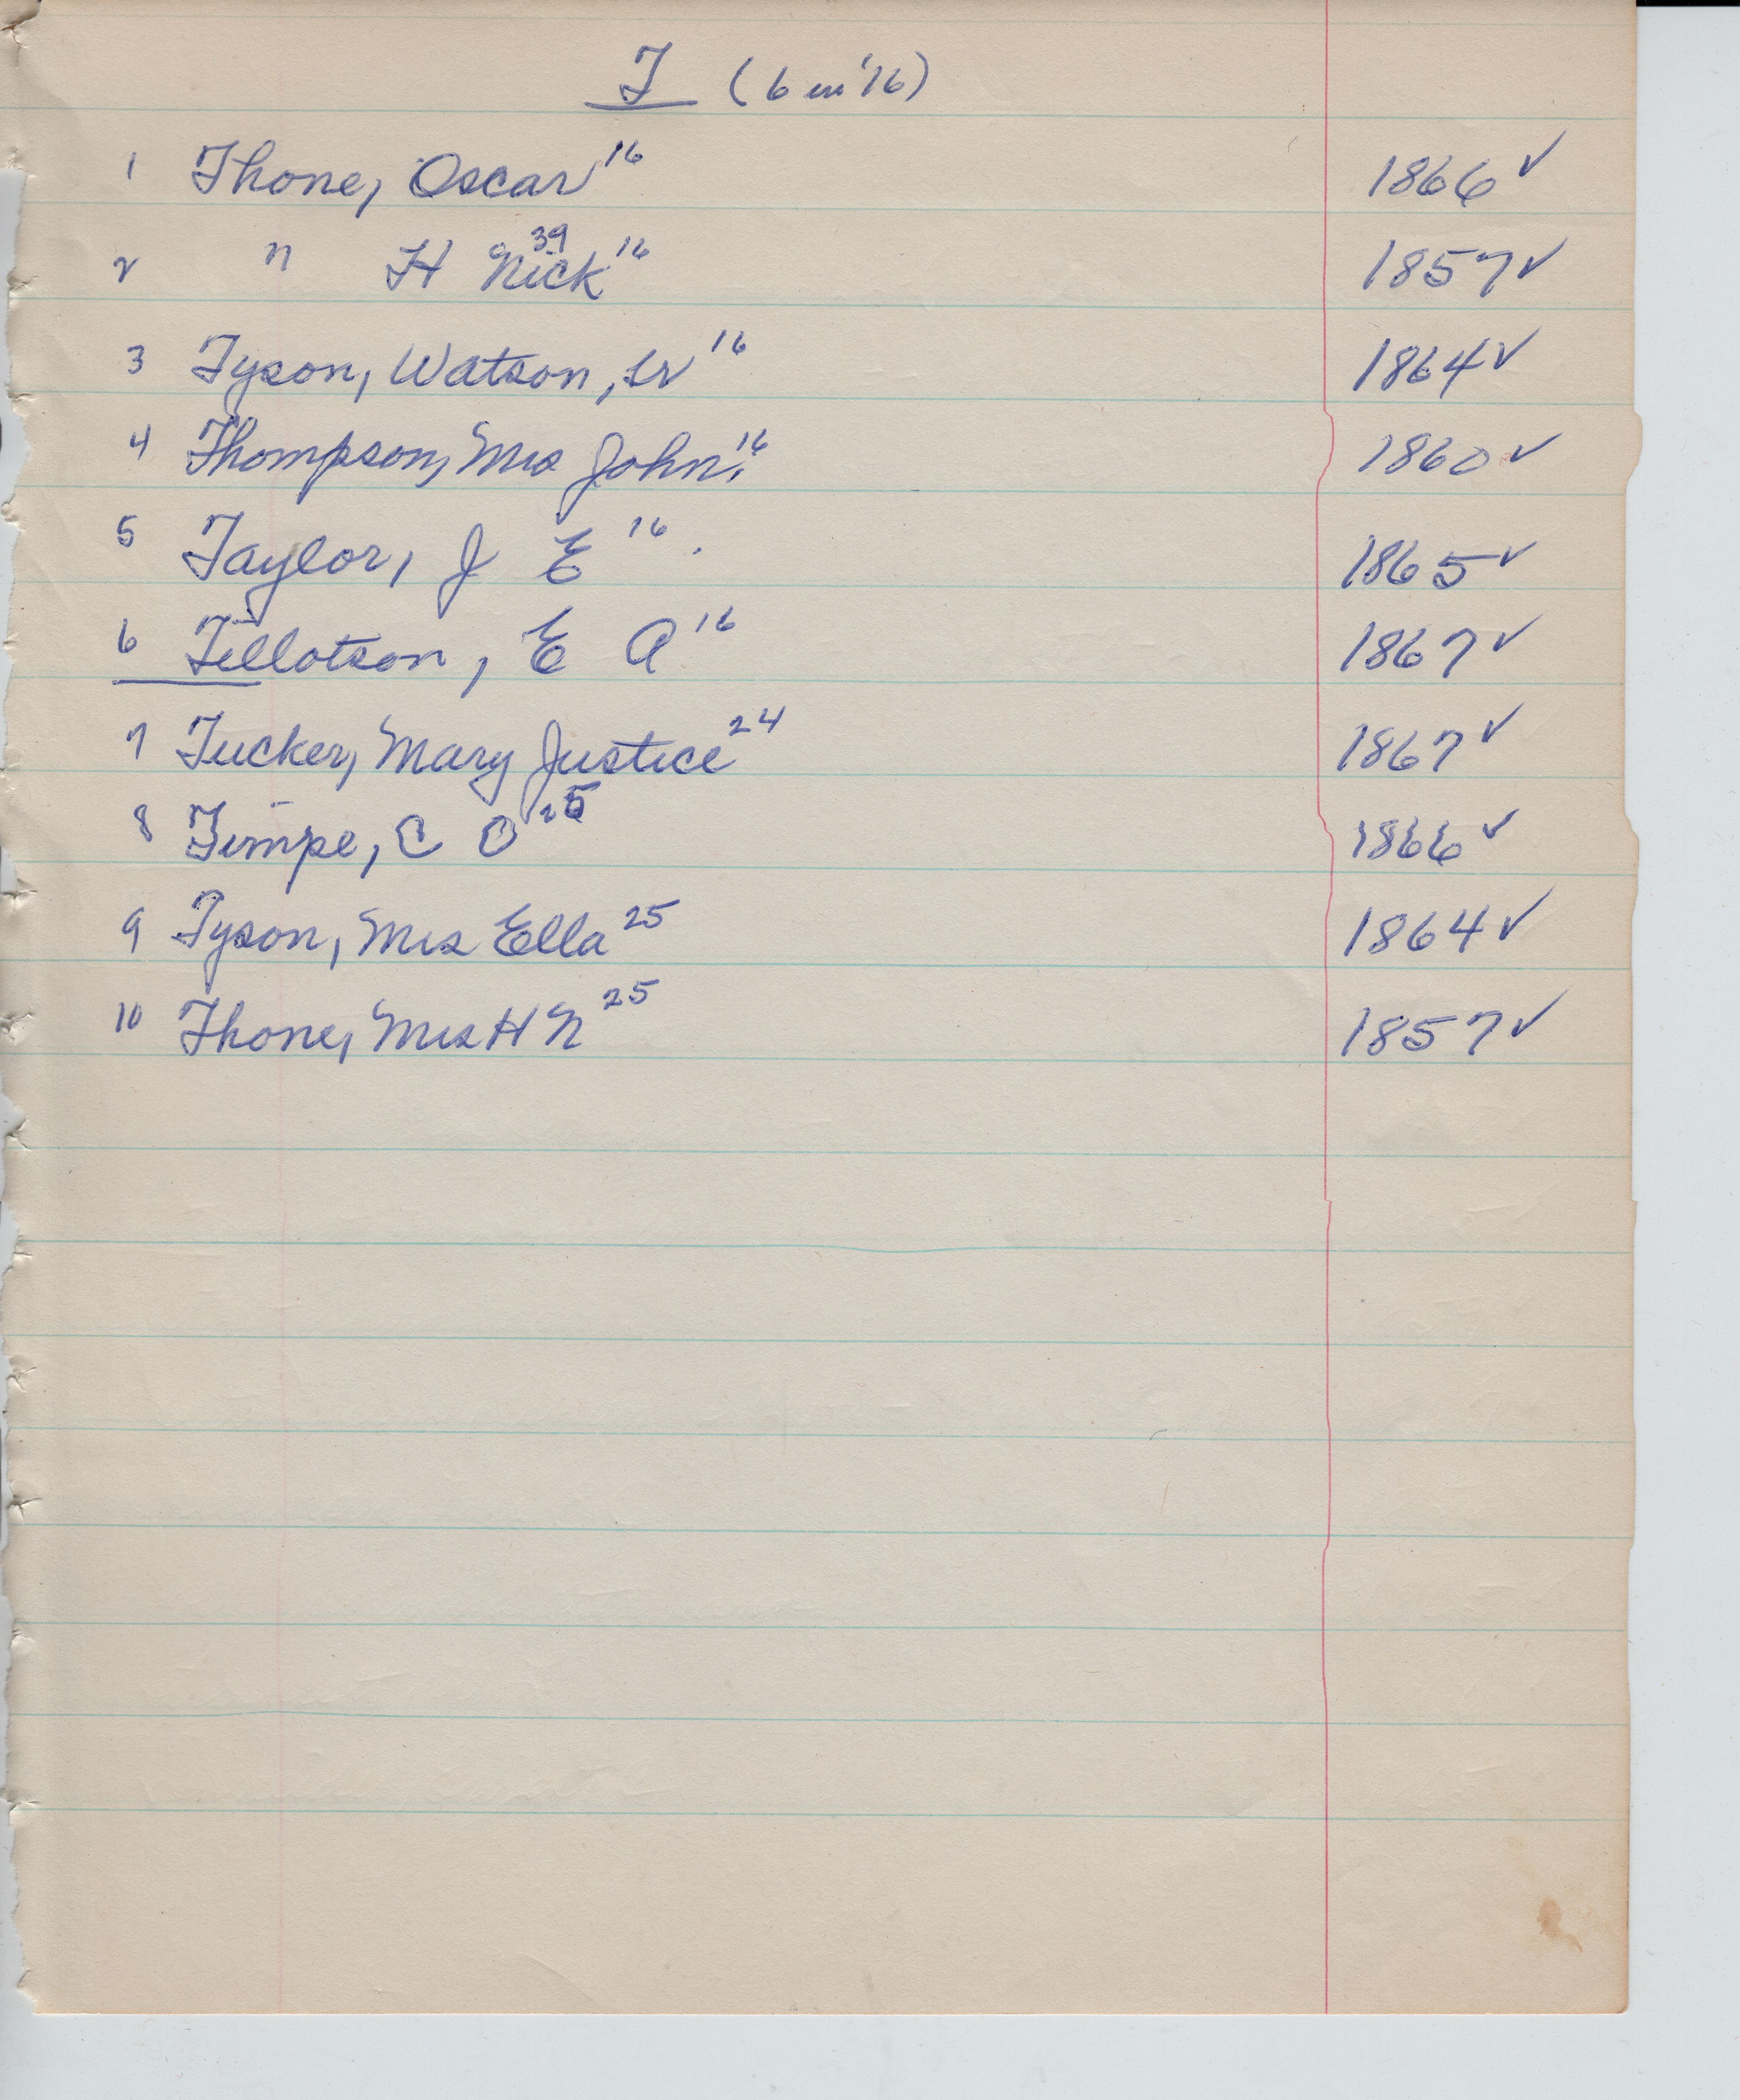 T (6 in '16)
1 Thone, Oscar 16 1866 ✓
2 " H Nick 39 16 1857 ✓
3 Tyson, Watson, Sr 16 1864 ✓
4 Thompson, Mrs John 16 1860 ✓
5 Taylor, J E 16 1865 ✓
6 Tillotson, E A 16 1867 ✓
7 Tucker, Mary Justice 24 1867 ✓
8 Timpe, C O 25 1866 ✓
9 Tyson, Mrs Ella 25 1864 ✓
10 Thone, Mrs H N 25 1857 ✓